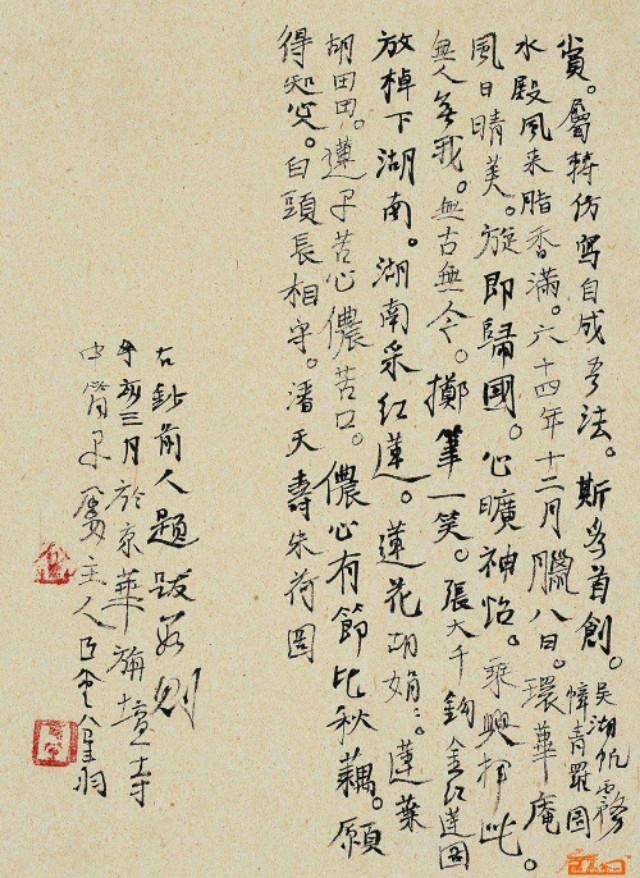 賞。屬轉仿寫自成吾法。斯為首創。吳湖帆霧幛青羅圖
水殿風来脂香滿。六十四年十二月臘八日。環華庵
風日晴美。旋即歸國。心曠神怡。乘興揮此。
無人無我。無古無今。擲筆一笑。張大千鉤金紅蓮圖
放棹下湖南。湖南采紅蓮。蓮花胡娟娟。蓮葉
胡田田。蓮子苦心儂苦口。儂心有節比秋藕。願
得知心。白頭長相守。潘天壽朱荷圖
右鈔前人題跋若則
辛亥三月於京華旃壇寺
中 主人